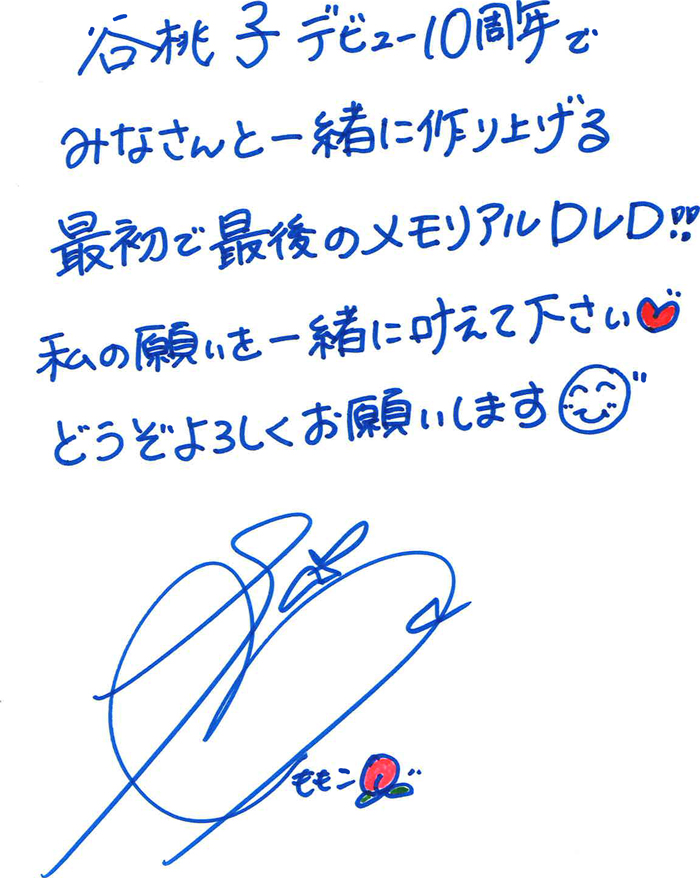 谷桃子デビュー10周年で
みなさんと一緒に作り上げる
最初で最後のメモリアルDVD!!
私の願いを一緒に叶えて下さい
どうぞよろしくお願いします
ももこ